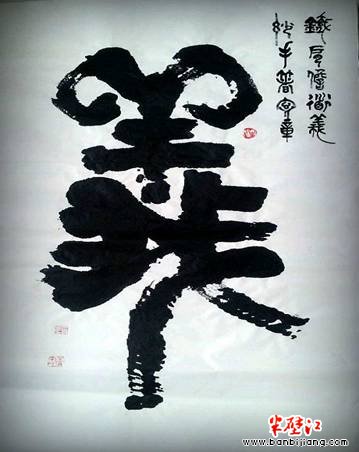 鐵肩儋道義
妙手著文章
義
半壁江
www.banbijiang.com